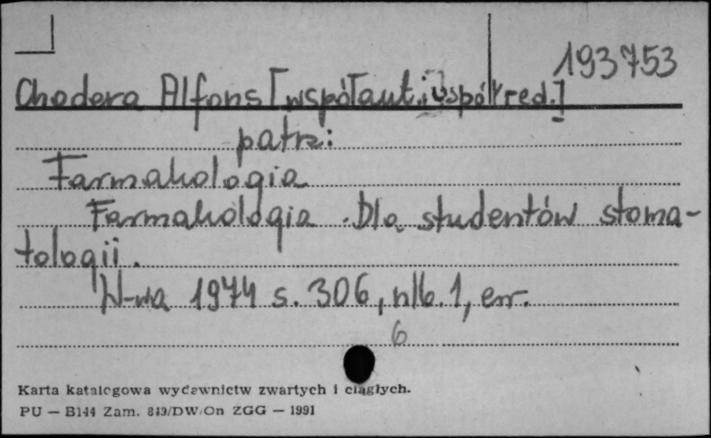 193753
Chodera Alfons [współaut. i współred.]
patrz:
Farmakologia
Farmakologia. Dla studentów stoma-
tologii.
W-wa 1974 s. 306, nlb. 1, err.
6
Karta katalogowa wydawnictw zwartych i ciągłych.
PU — B144 Zam. 849/DW/On ZGG — 1991